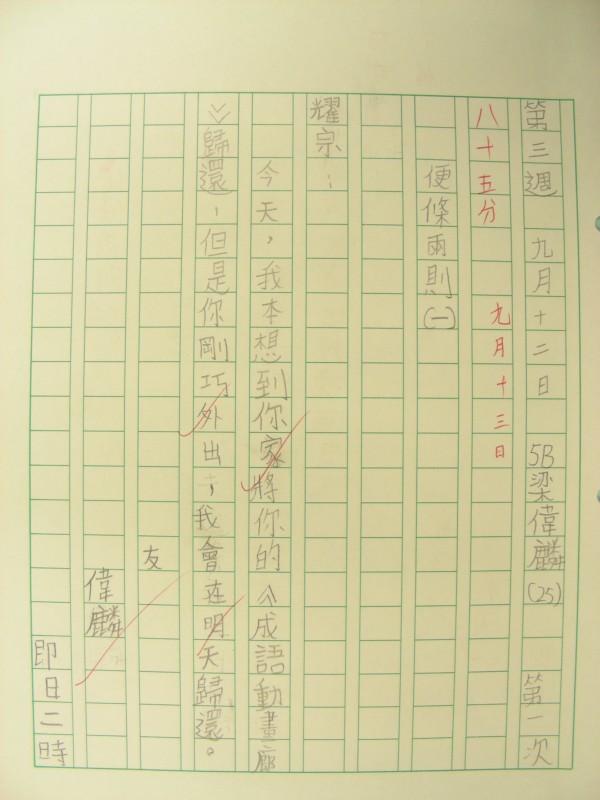 第三週 九月十二日 5B梁偉麟(25) 第一次
八十五分 九月十三日
便條兩則(一)
耀宗：
今天，我本想到你家將你的《成語動畫廊
》歸還，但是你剛巧外出，我會在明天歸還。
友
偉麟
即日二時